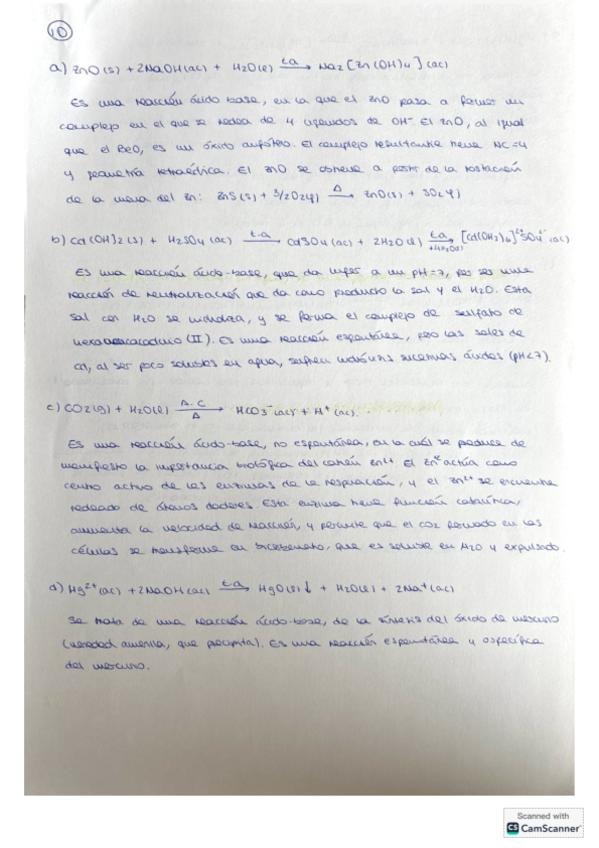 10
a) ZnO(s) + 2NaOH(ac) + H2O(l) t.a → Na2[Zn(OH)4](ac)
Es una reacción ácido-base, en la que el ZnO pasa a formar un
complejo en el que se rodea de 4 ligandos de OH-. El ZnO, al igual
que el BeO, es un óxido anfótero. El complejo resultante tiene NC=4
y geometría tetraédrica. El ZnO se obtiene a partir de la tostación
de la mena del Zn: ZnS(s) + 3/2O2(g) Δ → ZnO(s) + SO2(g)
b) Cd(OH)2(s) + H2SO4(ac) t.a → CdSO4(ac) + 2H2O(l) t.a → +4H2O(l) [Cd(OH2)6]2+SO4 2-(ac)
Es una reacción ácido-base, que da lugar a un pH=7, por ser una
reacción de neutralización que da como producto la sal y el H2O. Esta
sal con H2O se hidroliza, y se forma el complejo de sulfato de
(II). Es una reacción espontánea, pero las sales de
Cd, al ser poco solubles en agua, sufren hidrólisis sucesivas ácidas (pH<7).
c) CO2(g) + H2O(l) A.C → Δ HCO3-(ac) + H+(ac)
Es una reacción ácido-base, no espontánea, en la cuál se produce de
manifiesto la importancia biológica del catión Zn2+. El Zn2+ actúa como
centro activo de las enzimas de la respiración, y el Zn2+ se encuentra
rodeado de átomos dadores. Esta enzima tiene función catalítica,
aumenta la velocidad de reacción, y permite que el CO2 formado en las
células se transforme en bicarbonato, que es soluble en H2O y expulsado.
d) Hg2+(ac) + 2NaOH(ac) t.a → HgO(s)↓ + H2O(l) + 2Na+(ac)
Se trata de una reacción ácido-base, de la síntesis del óxido de mercurio
(variedad amarilla, que precipita). Es una reacción espontánea y específica
del mercurio.
Scanned with
CS CamScanner